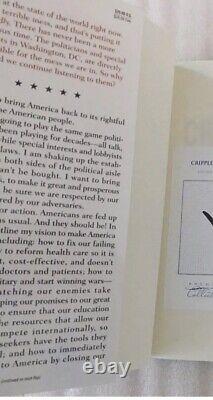 at the state of the world right now.
terrible mess, and that's putting
edly. There has never been a more
ous time. The politicians and special
ts in Washington, DC, are directly
sible for the mess we are in. So why
ld we continue listening to them?
★ ★ ★ ★ ★
to bring America back to its rightful
he American people.
going to play the same game politi-
been playing for decades—all talk,
while special interests and lobbyists
laws. I am shaking up the estab-
both sides of the political aisle
can't be bought. I want to bring
to make it great and prosperous
be sure we are respected by
ared by our adversaries.
or action. Americans are fed up
usual. And they should be! In
utline my vision to make America
ncluding: how to fix our failing
to reform health care so it is
t, cost-effective, and doesn't
doctors and patients; how to
itary and start winning wars—
atching our enemies take
eping our promises to our great
to ensure that our education
the resources that allow our
ompete internationally, so
seekers have the tools they
and how to immediately
to America by closing our
(continued on back flap)
CRIPPLE
ebay